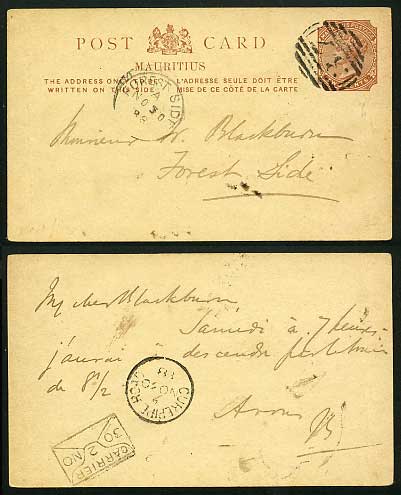 POST CARD
MAURITIUS
THE ADDRESS ONLY TO BE L'ADRESSE SEULE DOIT ÊTRE
WRITTEN ON THIS SIDE MISE DE CE CÔTÉ DE LA CARTE
FOREST SIDE
A
NO 30
88
Monsieur W. Blackburn
Forest Side
My dear Blackburn
Samedi à 7 heures
j'aurai à descendre par le train
de 8 1/2
CUREPIPE ROAD
NO 30
88
CARRIER
2
30 NO